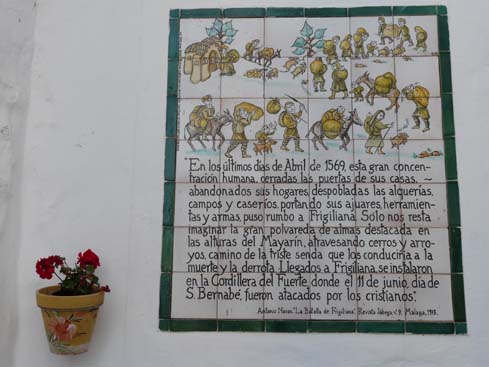 "En los últimos días de Abril de 1569, esta gran concen-
tración humana, cerradas las puertas de sus casas, ~
abandonados sus hogares, despobladas las alquerías,
campos y caseríos, portando sus ajuares, herramien-
tas y armas, puso rumbo a Frigiliana. Sólo nos resta
imaginar la gran polvareda de almas destacada en
las alturas del Mayarín, atravesando cerros y arro-
yos, camino de la triste senda que los conduciría a la
muerte y la derrota. Llegados a Frigiliana, se instalaron
en la Cordillera del Fuerte, donde el 11 de junio, día de
S. Bernabé, fueron atacados por los cristianos".
Antonio Navas. "La Batalla de Frigiliana". Revista Jábega, nº 9. Málaga,